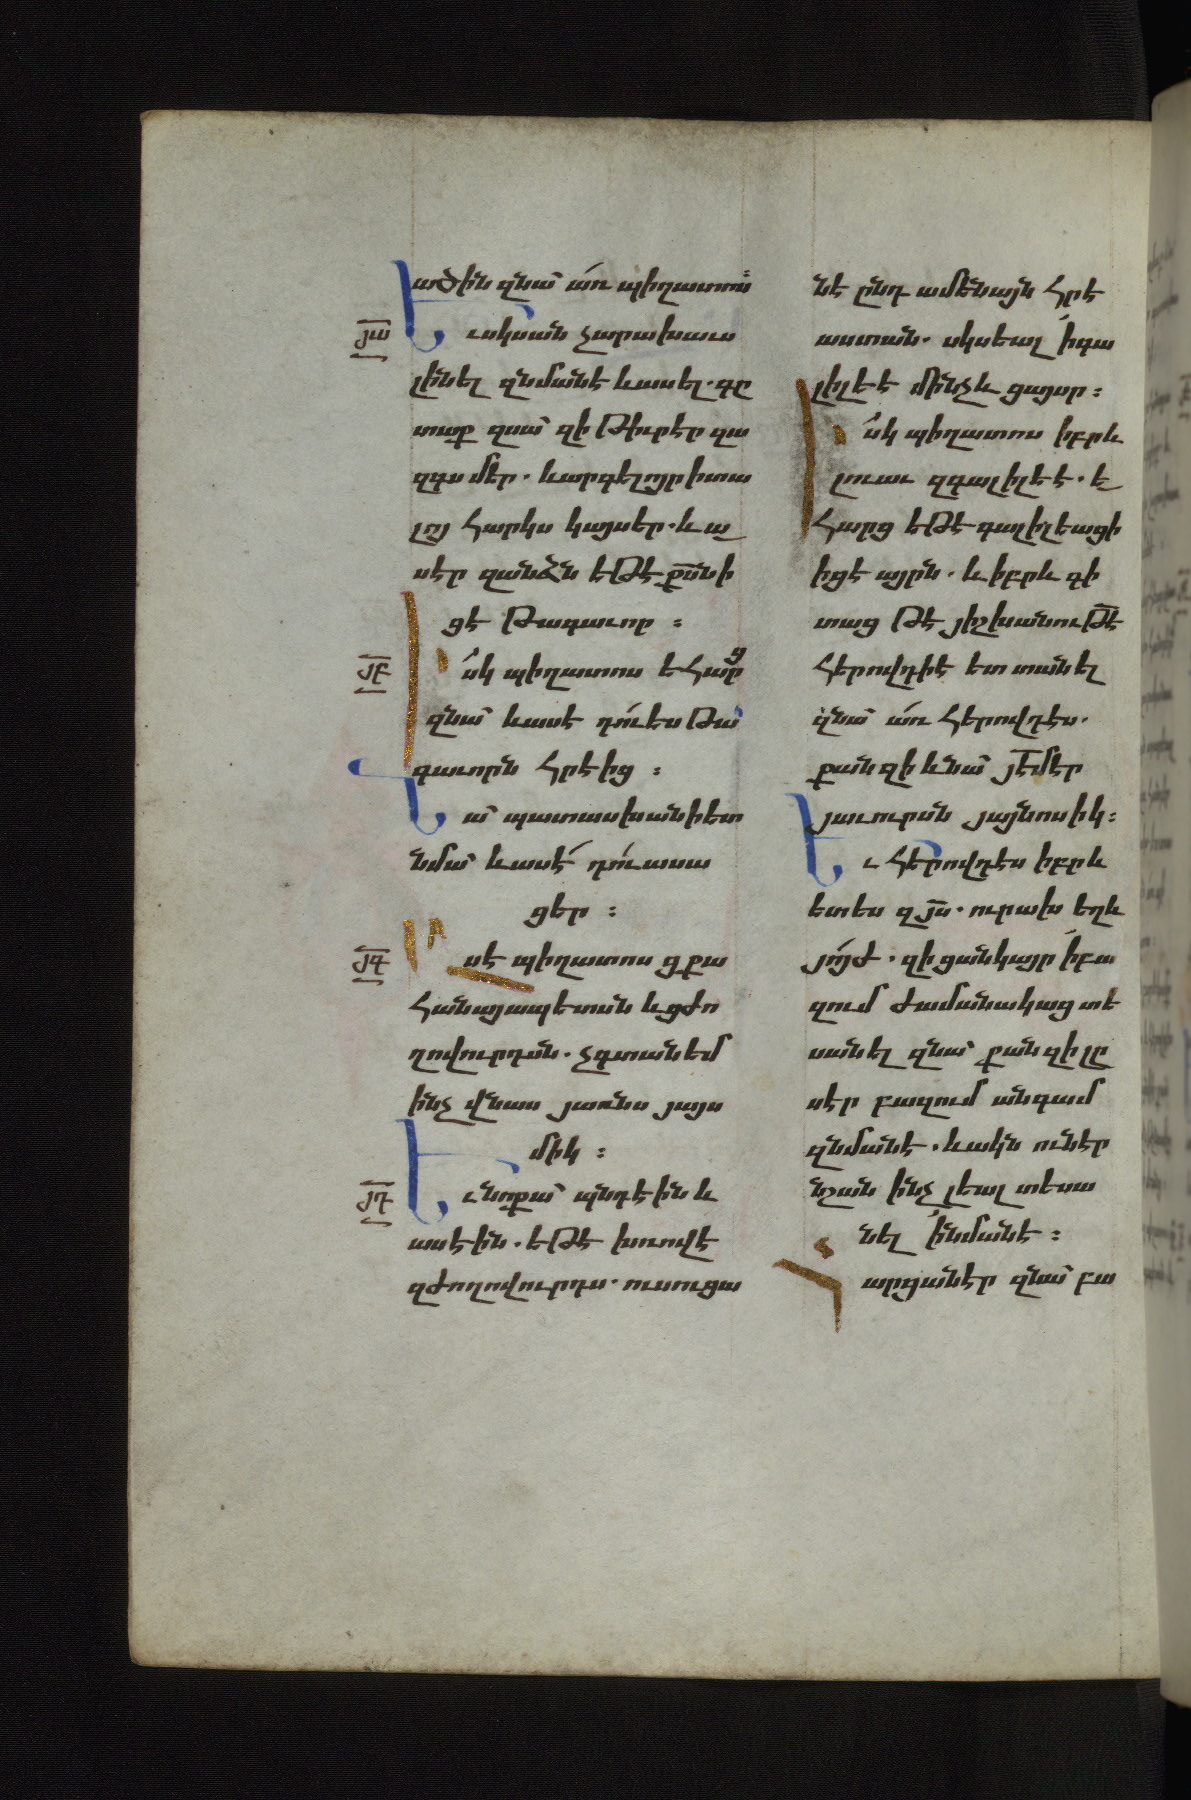 ածին զնա՝ ա՛ռ պիղատոս։
յա
Եւ սկսան չարախաւս
լինել զնմանէ և ասել. գը
տաք զսա՝ զի թիւրէր զա
զգս մեր. և արգելոյր ի տա
լոյ հարկս կայսեր. և ա
սէր զանձն եթէ ք̅ս նի
ցէ թագաւոր ։
յբ
Ի՛սկ պիղատոս եհարց
զնա՝ և ասէ դու՛ ես թա
գաւորն հրէից ։
Նա՝ պատասխանի ետ
նմա՝ և ասէ՛ դու՛ ասա
ցեր ։
յգ
Ասէ պիղատոս ցքա
հանայապետսն և ցժո
ղովուրդսն. չգտանեմ
ինչ վնաս յառնս յայս
միկ ։
յդ
Եւ նոքա՝ պնդէին և
ասէին. եթէ խռովէ
զժողովուրդս. ուսուցա
նէ ընդ ամենայն հրէ
աստան. սկսեալ ի գա
լիլեէ մինչև ցայսր ։
Ի՛սկ պիղատոս իբրև
լուաւ զգալիլեէ. ե
հարց եթէ գալիլեացի
իցէ այրն. և իբրև գի
տաց թէ յիշխանութէ̅
հերովդիէ ետ տանել
զնա՝ ա՛ռ հերովդէս.
քանզի և նա՝ յԷ̅մ էր
յաւուրսն յայնոսիկ ։
Եւ հերովդէս իբրև
ետես զյ̅ս. ուրախ եղև
յո՛յժ. զի ցանկայր ի բա
զում ժամանակաց տե
սանել զնա՝ քանզի լը
սէր բազում անգամ
զնմանէ. և ակն ունէր
նշան ինչ լեալ տեսա
նել ի նմանէ ։
Հարցանէր զնա՝ բա